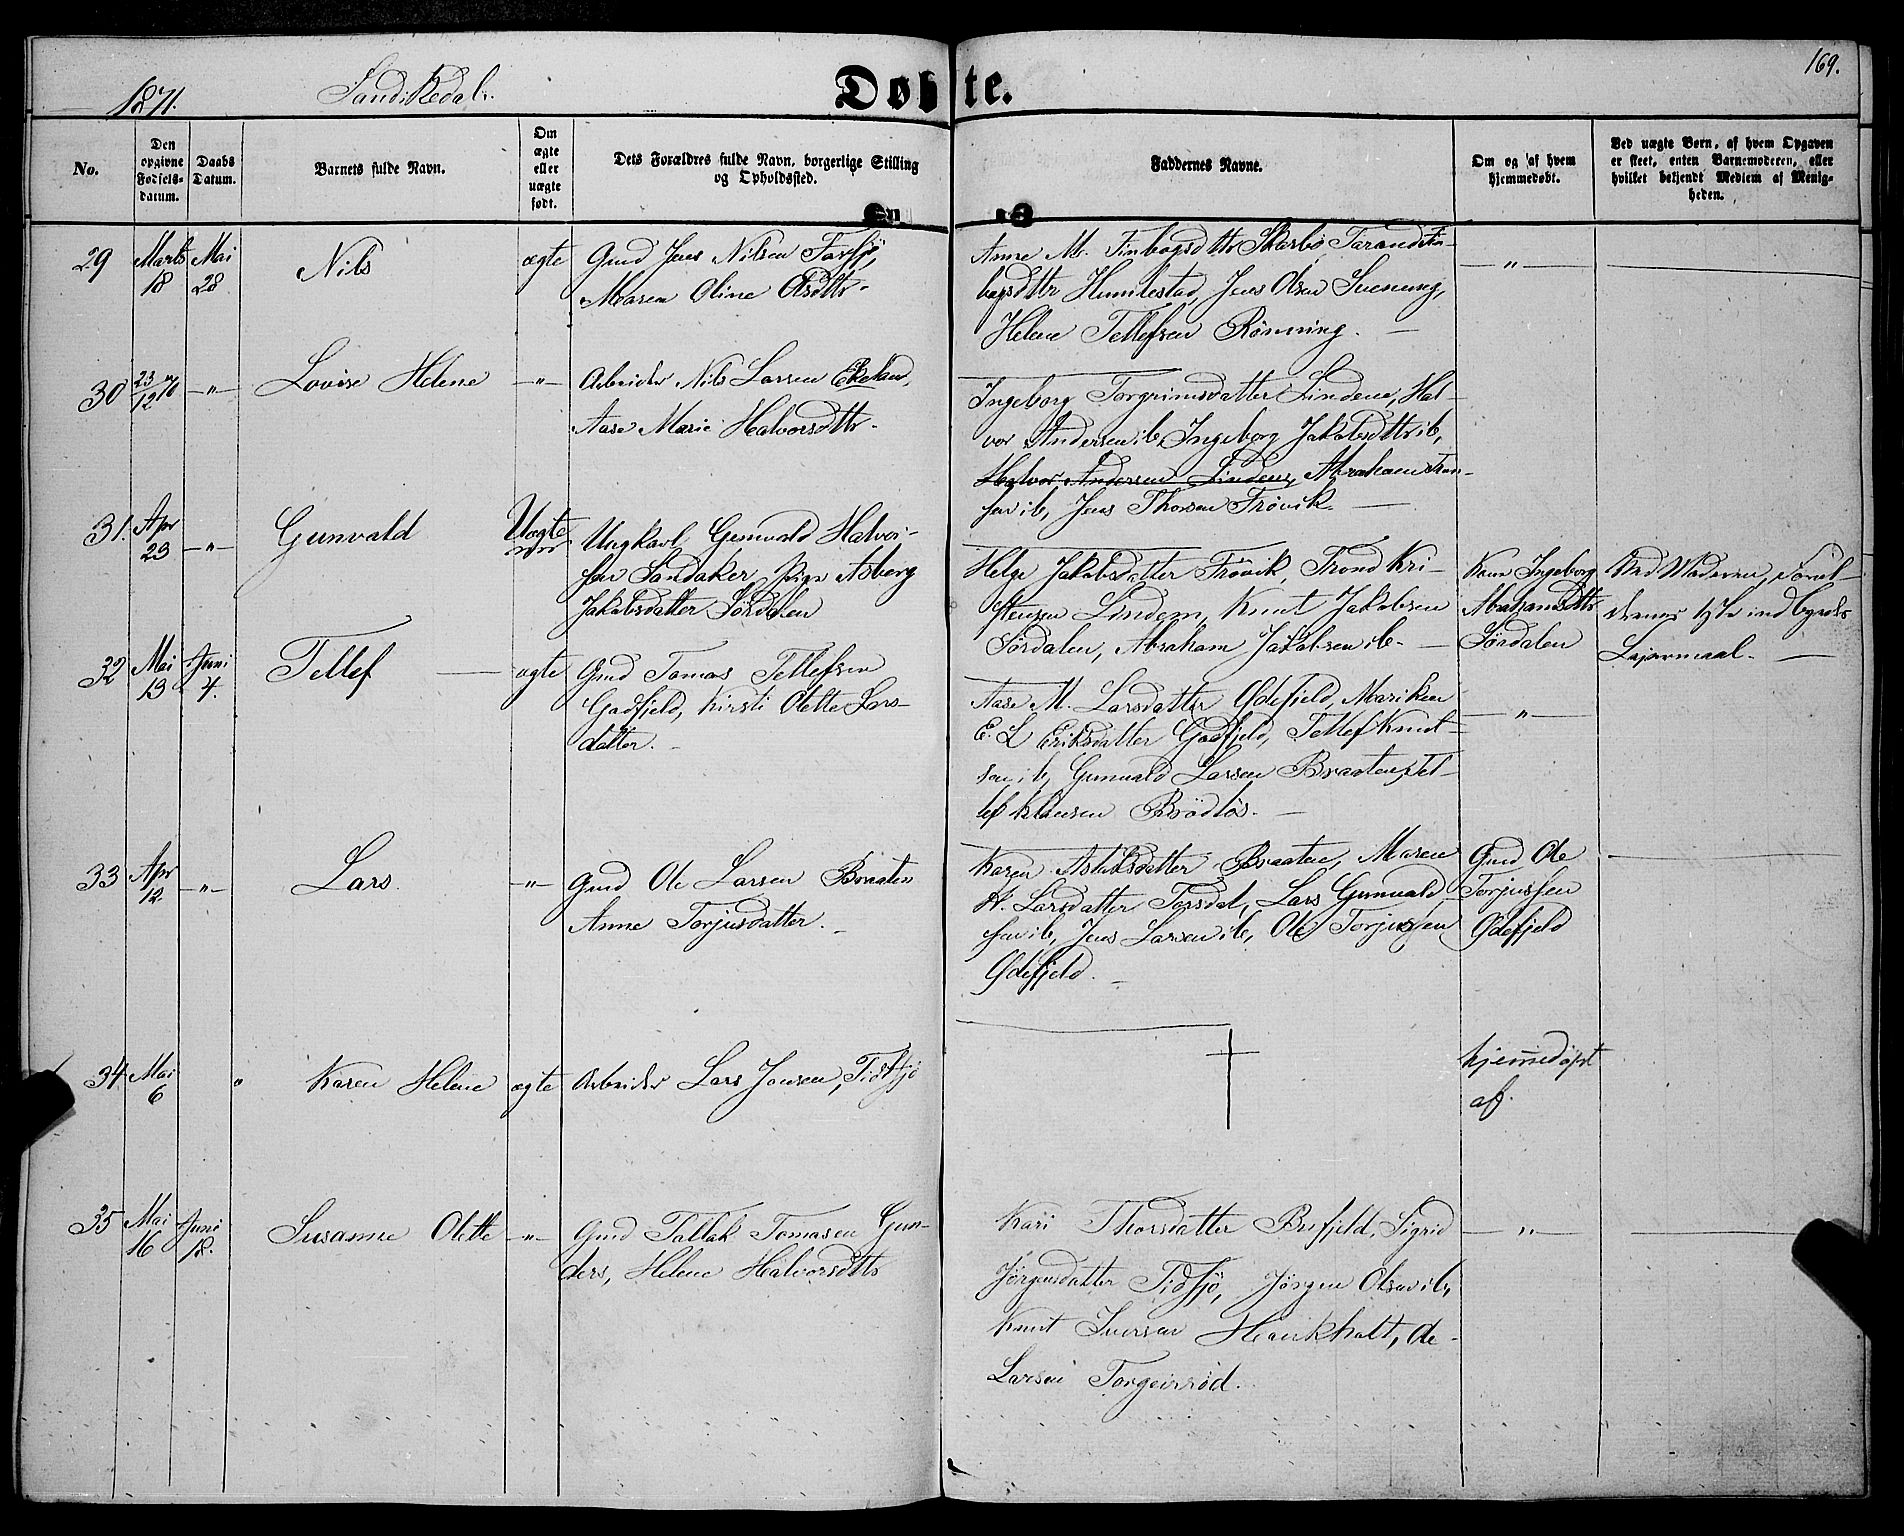 169.
1871. Sandökedal.
Døbte.
No.
Den opgivne Fødselsdatum.
Daabs Datum.
Barnets fulde Navn.
Om ægte eller uægte født.
Dets Forældres fulde Navn, borgerlige Stilling og Opholdssted.
Faddernes Navne.
Om og af hvem hjemmedøbt.
Ved uægte Børn, af hvem Opgaven er skeet, enten Barnemoderen, eller hvilket bekjendt Medlem af Menigheden.
29 Marts 18 Mai 28 Nils ægte
Gmd Jens Nilsen
Maren Oline Olsdttr.
Anne M. Finbogsdttr Skarbo, Tarand Fin-
bogsdttr Humlestad, Jens Olsen Svenung,
Helene Tellefsen Rønning. —
—"—
30 23/12 70 —"— Lovise Helene —"—
Arbeider Nils Larsen Ekeland,
Aase Marie Halvorsdttr.
Ingeborg Torgrimsdatter Lindem, Hal-
vor Andersen ib, Ingeborg Jakobsdttr ib,
Halvor Andersen Lindem, Abraham
sen ib, Jens Thorsen Frøvik —
31. Apr 23 —"— Gunvald Uægte
Ungkarl Gunvald Halvor-
sen Sandaker, Pige Asberg
Jakobsdatter Sørdalen
Helge Jakobsdatter Frøvik, Trond Kri-
stensen Lindem, Knut Jakobsen
Sørdalen, Abraham Jakobsen ib —
Kone Ingeborg
Abrahamsdttr
Sørdalen
Ved Moderen, Foræl-
dernes 1ste indbyrdes
Leiermaal. —
32 Mai 13 Juni 4. Tellef — ægte
Gmd Tomas Tellefsen
Gadfjeld, Kirsti Olette Lars-
datter. —
Aase M. Larsdatter Ødefjeld, Mariken
E. L Eriksdatter Gadfjeld, Tellef Knut-
sen ib, Gunvald Larsen Braaten, Tel-
lef Klausen Brødløs. —
—"—
33 Apr 12. —"— Lars. —"—
Gmd Ole Larsen Braaten
Anne Torjusdatter. —
Karen Aslaksdatter Braaten, Maren
H. Larsdatter Torsdal, Lars Gunvald-
sen ib, Jens Larsen ib, Ole Torjussen
Ødefjeld. —
Gmd Ole
Torjussen
Ødefjeld
34 Mai 6 " Karen Helene ægte
Arbeider Lars Jonsen, Tidsjø
hjemmedøpt
af.
35 Mai 16 Juni 18. Susanne Olette —"—
Gmd Tallak Tomasen Gun-
ders, Helene Halvorsdttr
Kari Thorsdatter Bufjeld, Sigrid
Jørgensdatter Tidsjø, Jørgen Olsen ib,
Knut Iversen Heierkholt, Ole
Larsen Torgeirsrød.
—"—